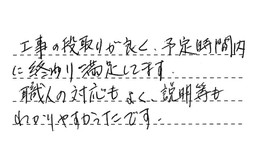 工事の段取りが良く、予定時間内
に終わり満足してます。
職人の対応もよく、説明等も
わかりやすかったです。